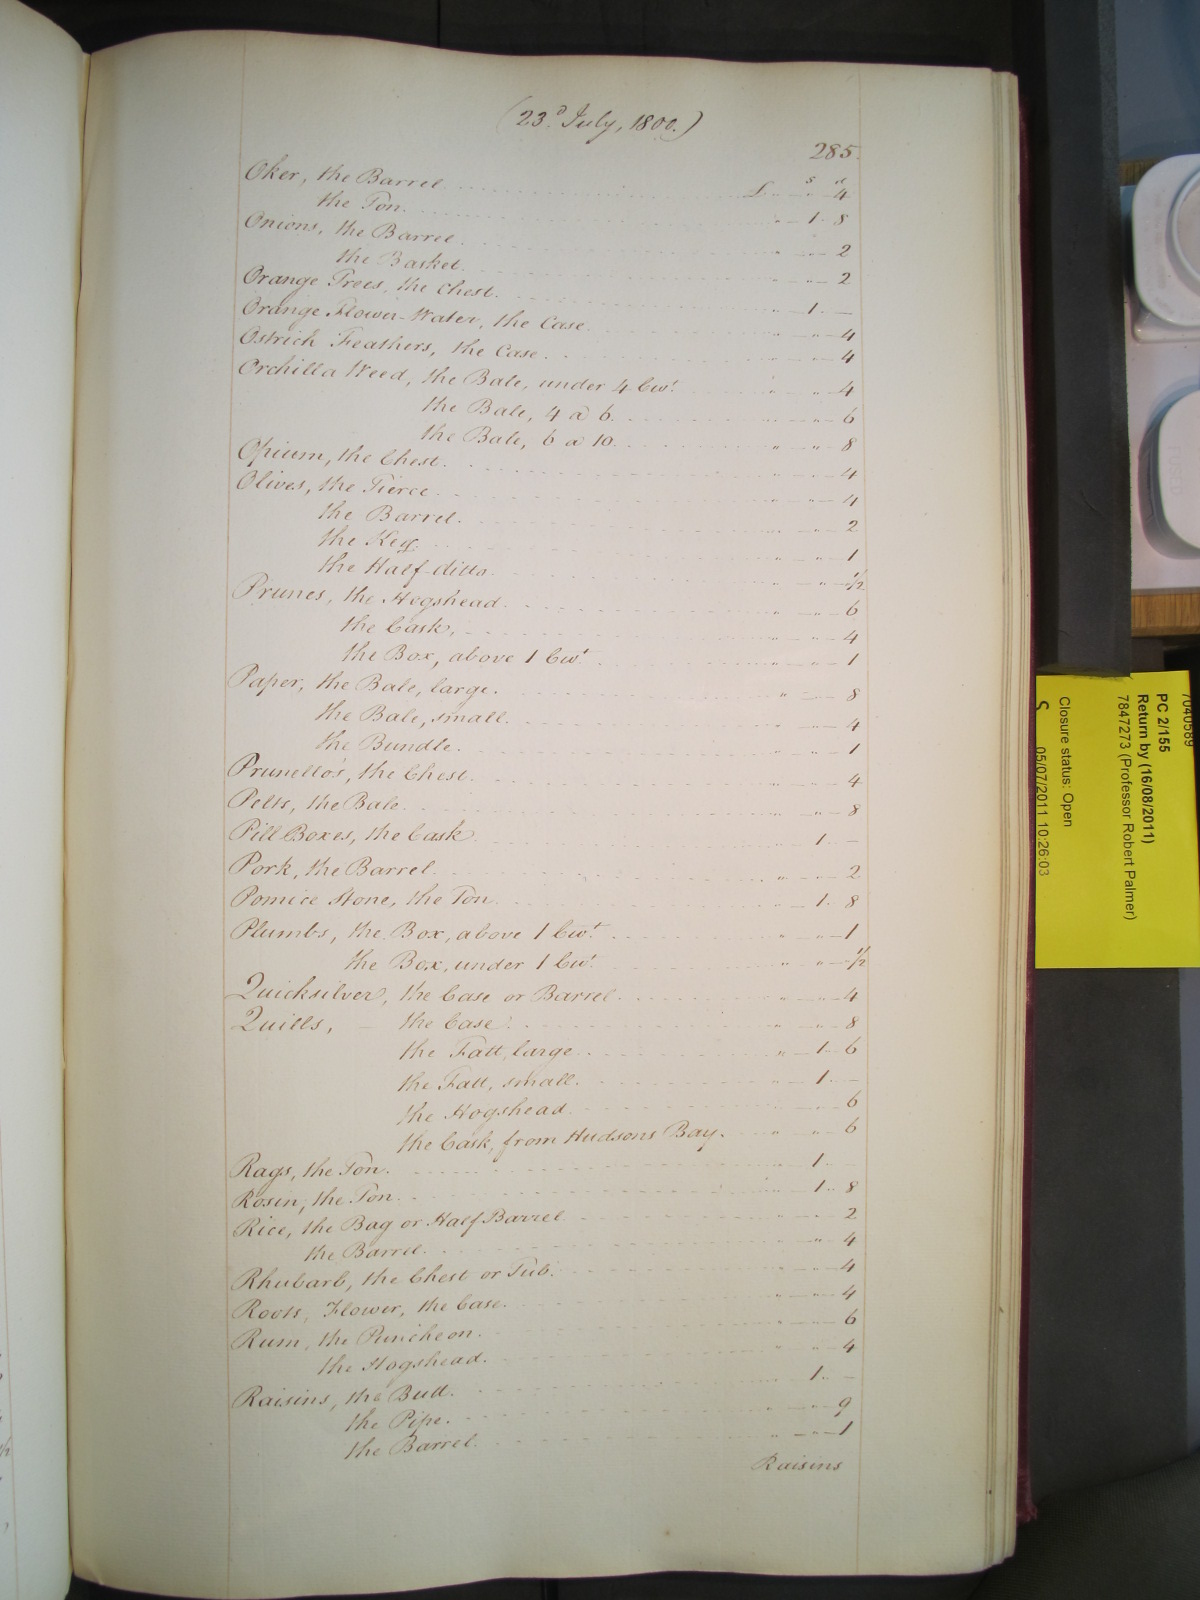 (23d July, 1800.)
285.
Oker, the Barrel £ " s " d 4
the Ton " 1 . 8
Onions, the Barrel " " 2
the Basket " " 2
Orange Trees, the Chest " 1 . —
Orange Flower-Water, the Case " " 4
Ostrich Feathers, the Case " " 4
Orchilla Weed, the Bale, under 4 Cwt " " 4
the Bale, 4 a 6 " " 6
the Bale, 6 a 10 " " 8
Opium, the Chest " " 4
Olives, the Tierce " " 4
the Barrel " " 2
the Keg " " 1
the Half ditto " " 1/2
Prunes, the Hogshead " " 6
the Cask " " 4
the Box, above 1 Cwt " " 1
Paper, the Bale, large " " 8
the Bale, small " " 4
the Bundle " " 1
Prunello's, the Chest " " 4
Pelts, the Bale " " 8
Pill Boxes, the Cask " 1 . —
Pork, the Barrel " " 2
Pomice Stone, the Ton " 1 . 8
Plumbs, the Box, above 1 Cwt " " 1
the Box, under 1 Cwt " " 1/2
Quicksilver, the Case or Barrel " " 4
Quills, — the Case " " 8
the Fatt, large " 1 . 6
the Fatt, small " 1 . —
the Hogshead " " 6
the Cask, from Hudsons Bay " " 6
Rags, the Ton " 1 . —
Rosin, the Ton " 1 . 8
Rice, the Bag or Half Barrel " " 2
the Barrel " " 4
Rhubarb, the Chest or Tub " " 4
Roots, Flower, the Case " " 4
Rum, the Puncheon " " 6
the Hogshead " " 4
Raisins, the Butt " 1 . —
the Pipe " " 9
the Barrel " " 1
Raisins
7040589
PC 2/155
Return by (16/08/2011)
7847273 (Professor Robert Palmer)
Closure status: Open
S 05/07/2011 10:26:03